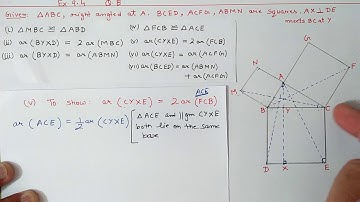 Ex 9.4 Q 8
Given: △ABC, right angled at A. BCED, ACFG, ABMN are squares. AX ⊥ DE
meets BC at Y
(i) △MBC ≅ △ABD
(ii) ar (BYXD) = 2 ar (MBC)
(iii) ar (BYXD) = ar (ABMN)
(iv) △FCB ≅ △ACE
(v) ar (CYXE) = 2 ar (FCB)
(vi) ar (CYXE) = ar (ACFG)
(vii) ar (BCED) = ar (ABMN)
+ ar (ACFG)
(v) To show: ar (CYXE) = 2 ar (FCB)
ACE
ar (ACE) = 1/2 ar (CYXE) [ △ACE and ||gm CYXE
both lie on the same
base
G
F
N
A
M
B
Y
C
D
X
E